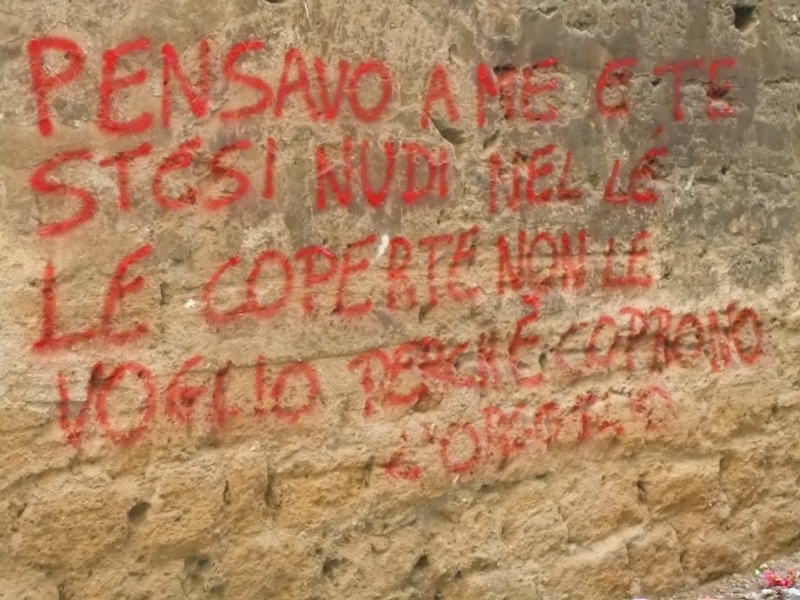 PENSAVO A ME E TE
STESI NUDI NEL LÉ
LE COPERTE NON LE
VOGLIO PERCHÉ COPRONO